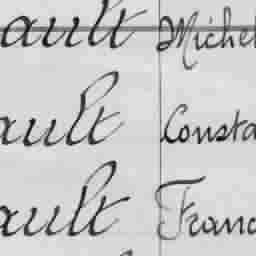 ault Michel
ault Consta
ault Franc